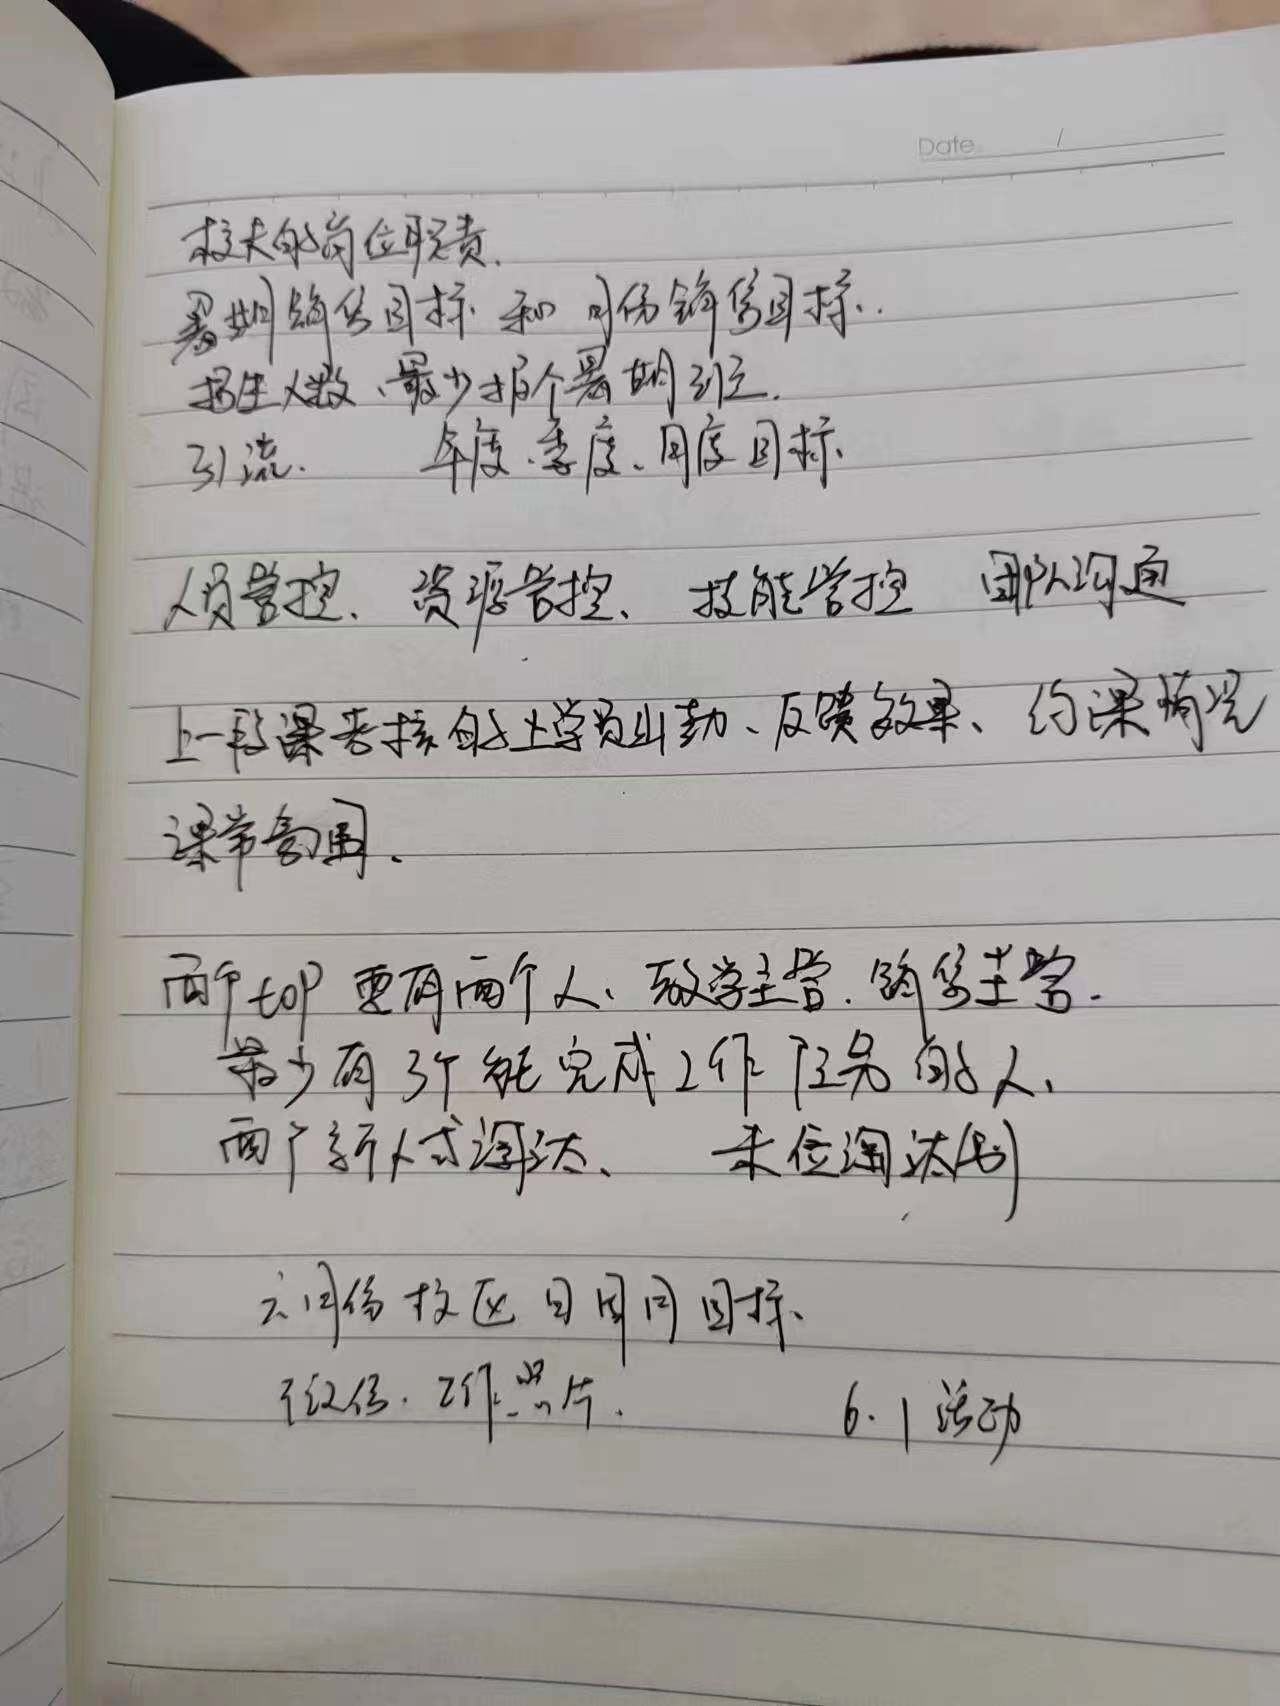 Date /
校长的岗位职责.
暑期销售目标 和 月份销售目标.
招生人数、最少报个暑期引立.
引流. 年度、季度、周度目标、
人员管控、资源管控、技能管控 团队沟通
上一段课考核的上学员出勤、反馈效果、约课情况
课常氛围.
两个top 要有两个人、教学主管、销售主管.
最少有3个能完成工作任务的人、
两个新人或淘汰、 末位淘汰制
六月份校区日周月目标、
工作照片. 6.1活动